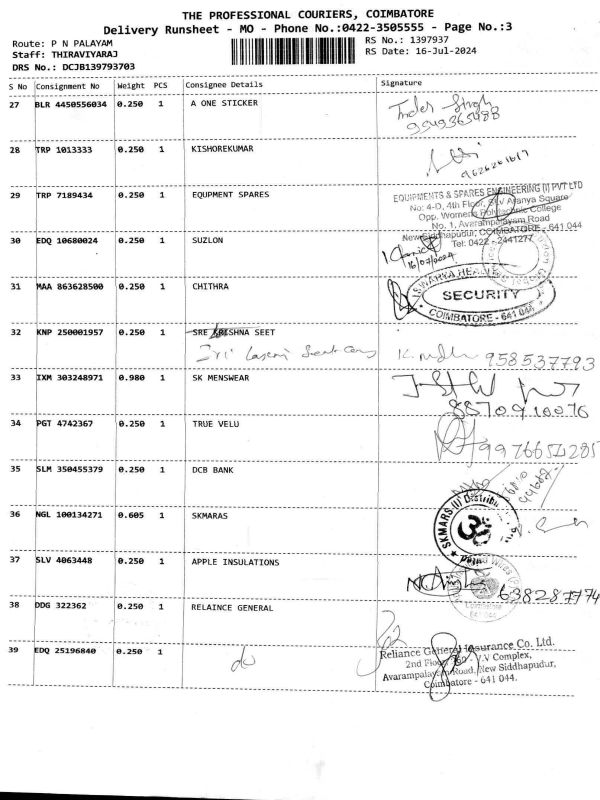 THE PROFESSIONAL COURIERS, COIMBATORE
Delivery Runsheet - MO - Phone No.:0422-3505555 - Page No.:3
Route: P N PALAYAM
RS No.: 1397937
Staff: THIRAVIYARAJ
RS Date: 16-Jul-2024
DRS No.: DCJB139793703
S No Consignment No Weight PCS Consignee Details Signature
27 BLR 4450556034 0.250 1 A ONE STICKER
Inder Singh
28 TRP 1013333 0.250 1 KISHOREKUMAR
29 TRP 7189434 0.250 1 EQUPMENT SPARES
EQUIPMENTS & SPARES ENGINEERING (I) PVT LTD
No: 4-D, 4th Floor, SLV Ananya Square
Opp. Womens Polytechnic College
No. 1, Avarampalayam Road
New Siddhapudur, COIMBATORE - 641 044
Tel: 0422 - 2441277
30 EDQ 10680024 0.250 1 SUZLON
16/07/2024
31 MAA 863628500 0.250 1 CHITHRA
SECURITY
COIMBATORE - 641 044
32 KNP 250001957 0.250 1 SRE KRISHNA SEET
Sri Laxmi Seat
9585377793
33 IXM 303248971 0.980 1 SK MENSWEAR
8870910076
34 PGT 4742367 0.250 1 TRUE VELU
35 SLM 350455379 0.250 1 DCB BANK
36 NGL 100134271 0.605 1 SKMARAS
SKMARS (I) Distribu
37 SLV 4063448 0.250 1 APPLE INSULATIONS
38 DDG 322362 0.250 1 RELAINCE GENERAL
39 EDQ 25196840 0.250 1
do
Reliance General Insurance Co. Ltd.
2nd Floor, V.V Complex,
Avarampalayam Road, New Siddhapudur,
Coimbatore - 641 044.